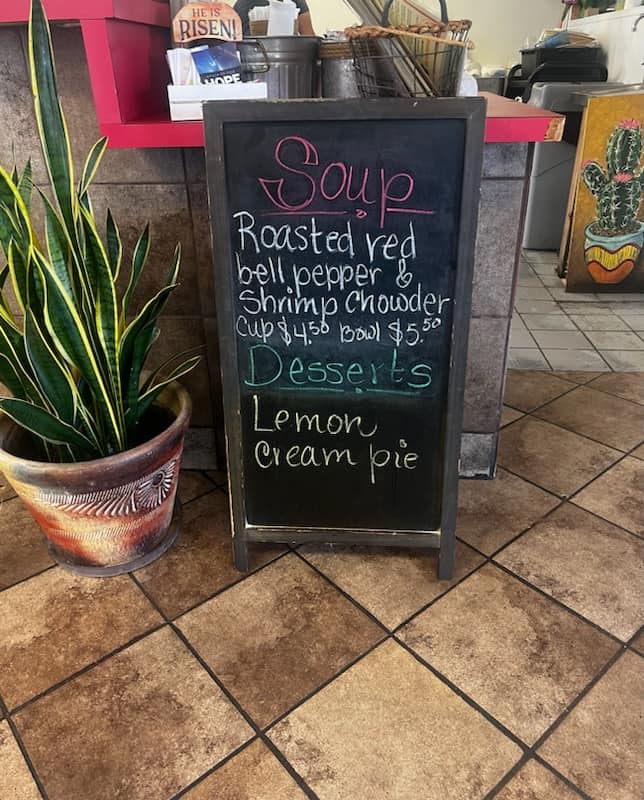 HE IS
RISEN!
HOPE
Soup
Roasted red
bell pepper &
Shrimp Chowder
Cup $4.50 Bowl $5.50
Desserts
Lemon
Cream pie